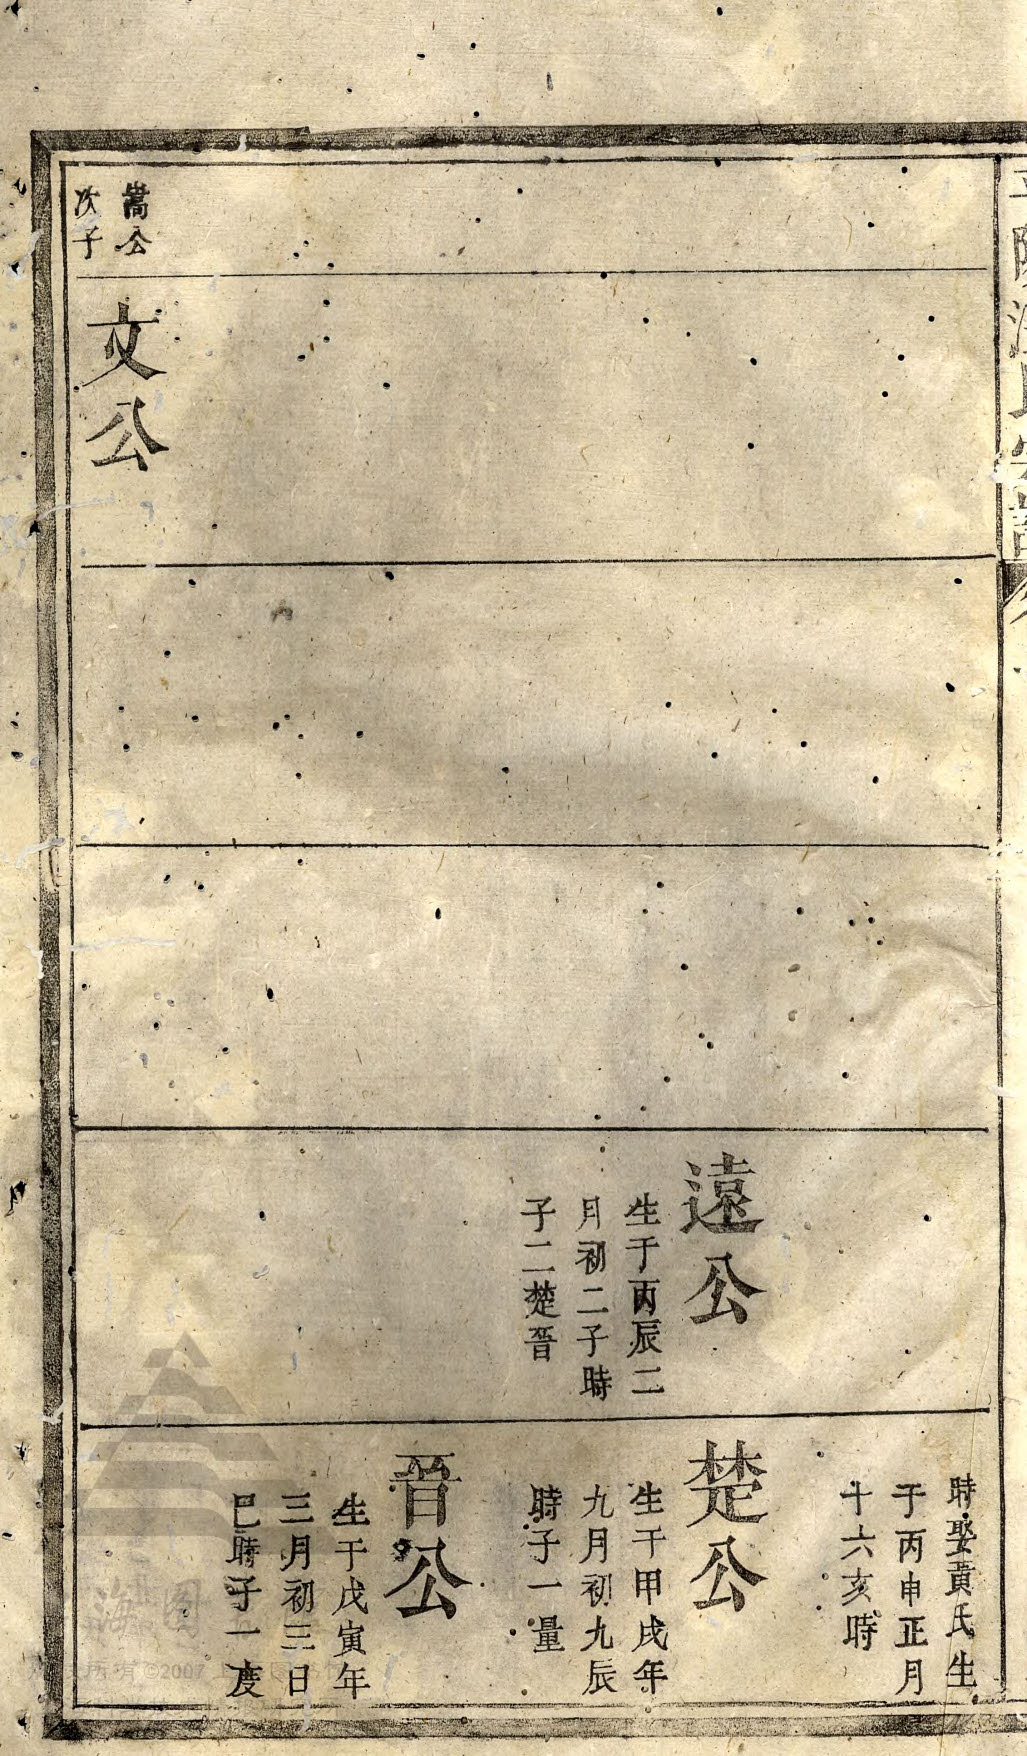 平陽氏宗譜
嵩公
次子
文公
遠公
生于丙辰二
月初二子時
子二楚晉
時娶黃氏生
于丙申正月
十六亥時
楚公
生于甲戌年
九月初九辰
時子一量
晉公
生于戊寅年
三月初三日
巳時子一度
所有 ©2007 上